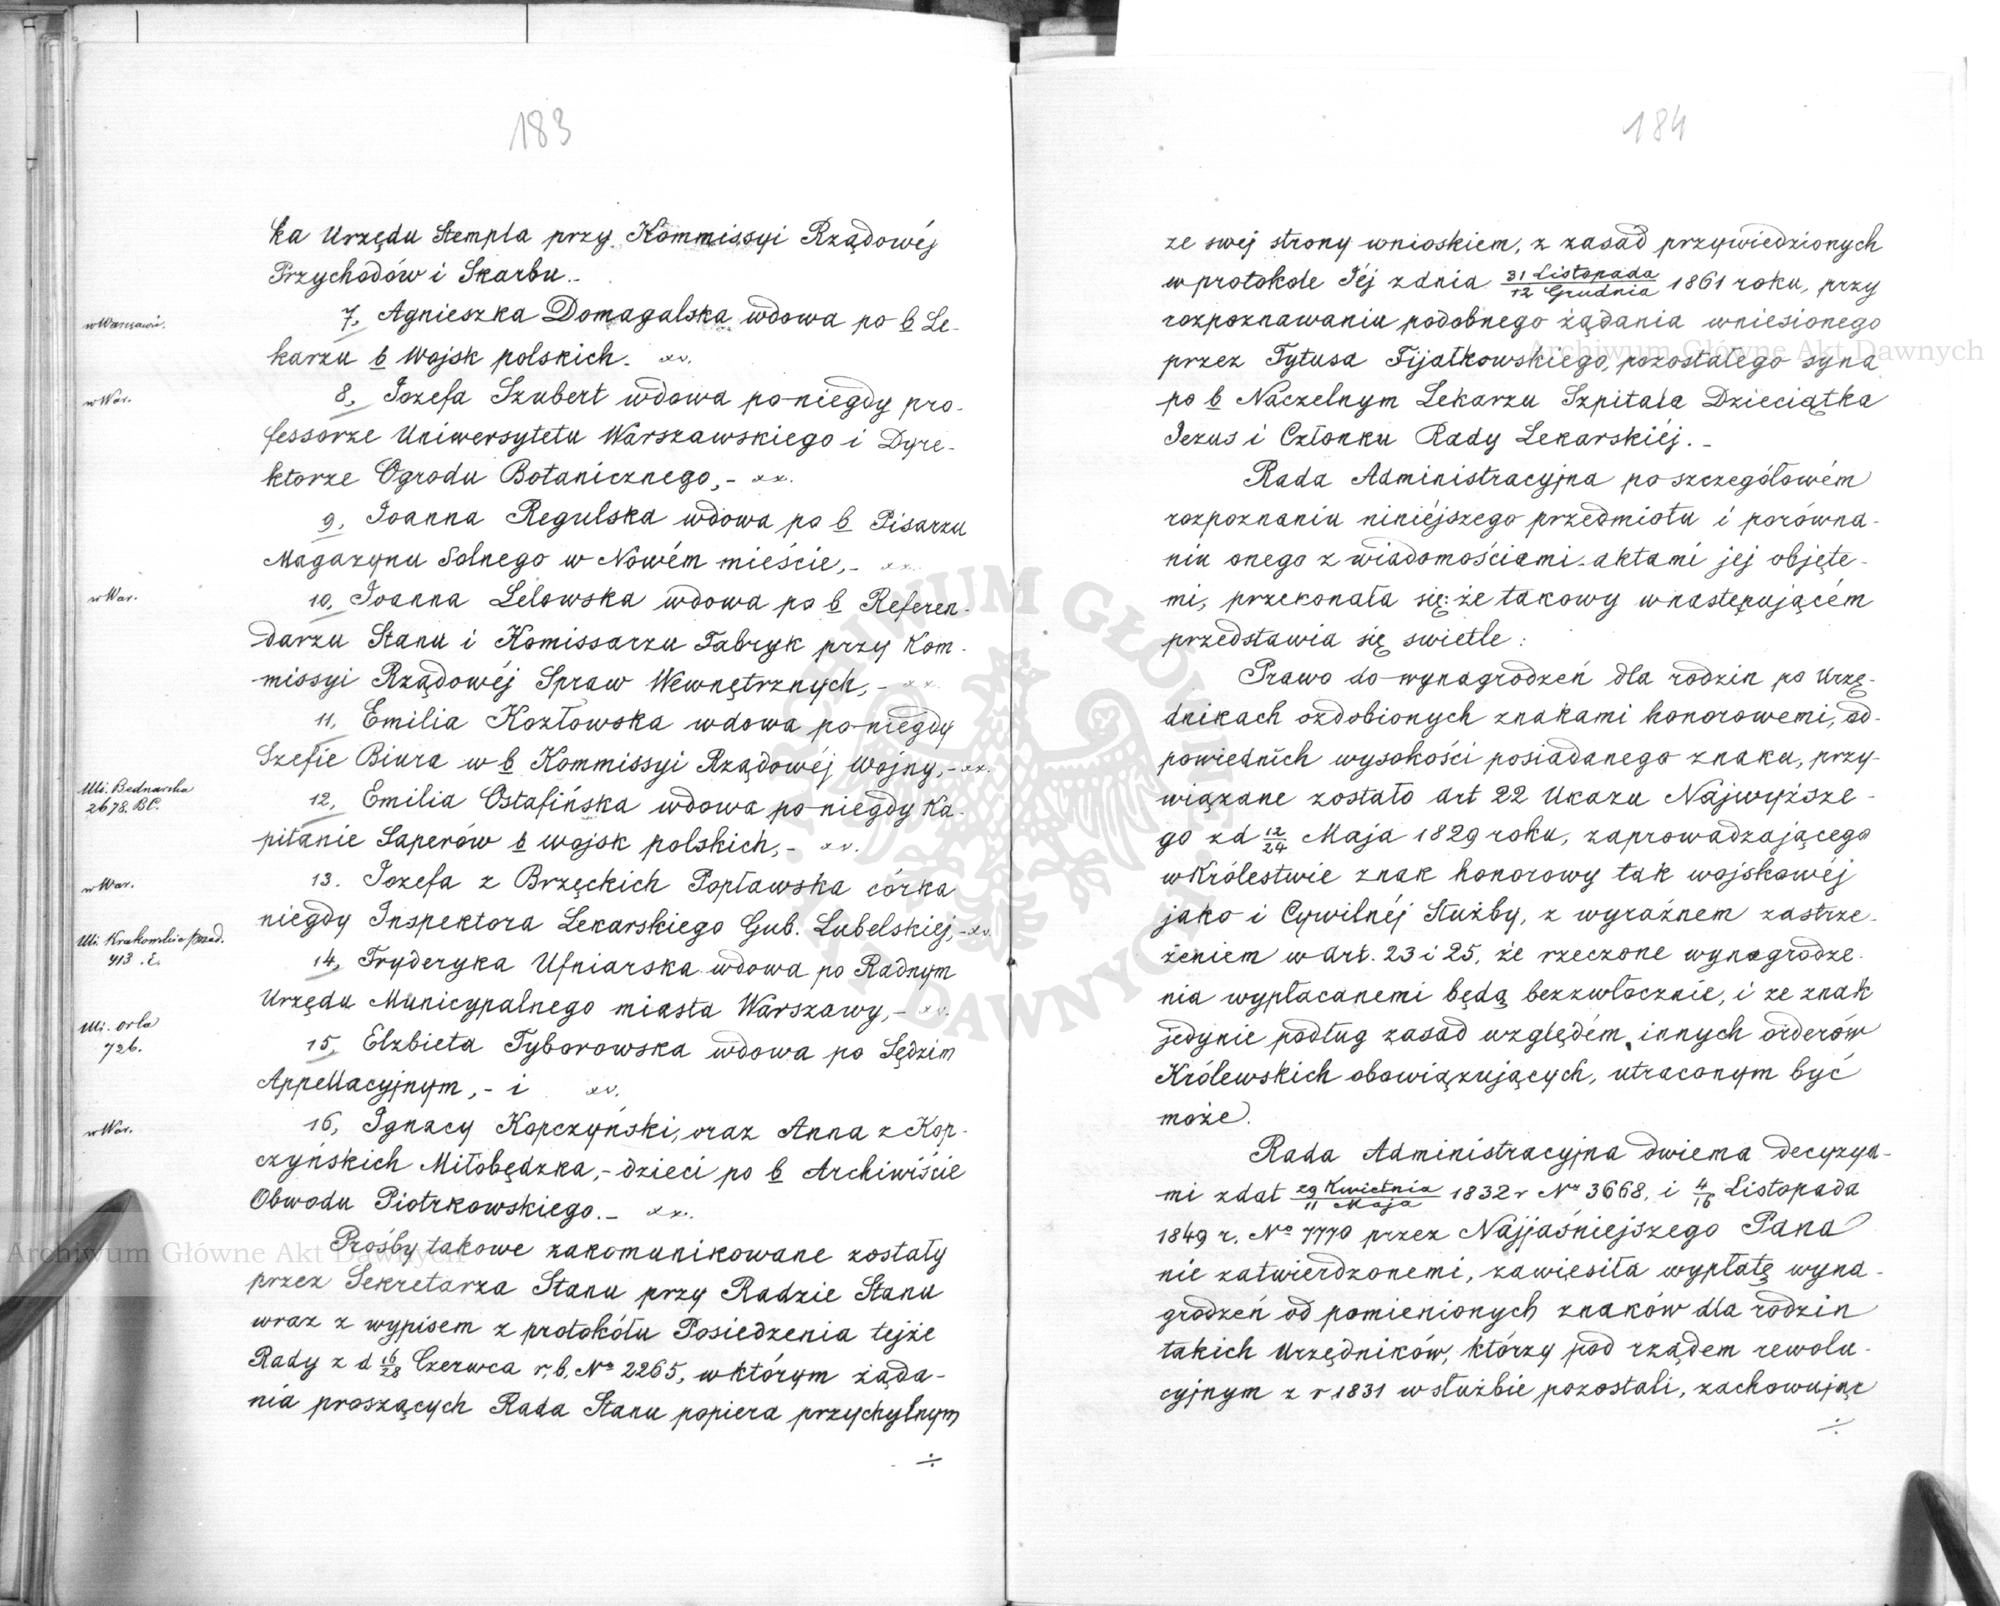 183
ka Urzędu Stempla przy Kommissyi Rządowéj
Przychodów i Skarbu.-
w Warszawie.
7, Agnieszka Domagalska wdowa po b Le-
karzu b Wojsk polskich.
w War.
8, Jozefa Szubert wdowa po niegdy pro-
fessorze Uniwersytetu Warszawskiego i Dyre-
ktorze Ogrodu Botanicznego,-
9, Joanna Regulska wdowa po b Pisarzu
Magazynu Solnego w Nowém mieście,-
w War.
10, Joanna Lelowska wdowa po b Referen-
darzu Stanu i Komissarzu Fabryk przy Kom-
missyi Rządowéj Spraw Wewnętrznych,-
11, Emilia Kozłowska wdowa po niegdy
Szefie Biura w b Kommissyi Rządowéj Wojny,-
Uli. Bednarska
2678. BC.
12, Emilia Ostafińska wdowa po niegdy Ka-
pitanie Saperów b wojsk polskich,-
w War.
13. Jozefa z Brzęckich Popławska córka
niegdy Inspektora Lekarskiego Gub. Lubelskiej,-
Uli. Krakowskie Przed.
413. E.
14, Fryderyka Ufniarska wdowa po Radnym
Urzędu Municypalnego miasta Warszawy,-
Uli. Orla
726.
15, Elzbieta Tyborowska wdowa po Sędzim
Appellacyjnym,- i
w War.
16, Ignacy Kopczyński, oraz Anna z Kop-
czyńskich Miłobędzka,- dzieci po b Archiwiście
Obwodu Piotrkowskiego.-
Prośby takowe zakomunikowane zostały
przez Sekretarza Stanu przy Radzie Stanu
wraz z wypisem z protokółu Posiedzenia tejże
Rady z d 16/28 Czerwca r, b, No 2265, w którym żąda-
nia proszących Rada Stanu popiera przychylnym
÷
184
ze swej strony wnioskiem, z zasad przywiedzionych
w protokole Jéj z dnia 31 Listopada/12 Grudnia 1861 roku, przy
rozpoznawaniu podobnego żądania wniesionego
przez Tytusa Fijałkowskiego, pozostałego syna
po b Naczelnym Lekarzu Szpitala Dzieciątka
Jezus i Członku Rady Lekarskiéj.-
Rada Administracyjna po szczegółowém
rozpoznaniu niniéjszego przedmiotu i porówna-
niu onego z wiadomościami aktami jej objęte-
mi, przekonała się: że takowy w następującém
przedstawia się swietle:
Prawo do wynagrodzeń dla rodzin po Urzę-
dnikach ozdobionych znakami honorowemi, od-
powiednich wysokości posiadanego znaku, przy-
wiązane zostało art 22 Ukazu Najwyższe-
go z d 12/24 Maja 1829 roku, zaprowadzającego
w Królestwie znak honorowy tak wojskowéj
jako i Cywilnéj Służby, z wyraźnem zastrze-
żeniem w Art. 23 i 25, że rzeczone wynagrodze-
nia wypłacanemi będą bezzwłocznie, i ze znak
jedynie podług zasad względém innych orderów
Królewskich obowiązujących, utraconym być
może.
Rada Administracyjna dwiema decyzya-
mi z dat 29 Kwietnia/11 Maja 1832 r No 3668, i 4/16 Listopada
1849 r. No 7770 przez Najjaśniejszego Pana
nie zatwierdzonemi, zawiesiła wypłatę wyna-
grodzeń od pomienionych znaków dla rodzin
takich Urzędników, którzy pod rządem rewolu-
cyjnym z r 1831 w służbie pozostali, zachowując
÷
ARCHIWUM GŁÓWNE AKT DAWNYCH
Archiwum Główne Akt Dawnych
Archiwum Główne Akt Dawnych